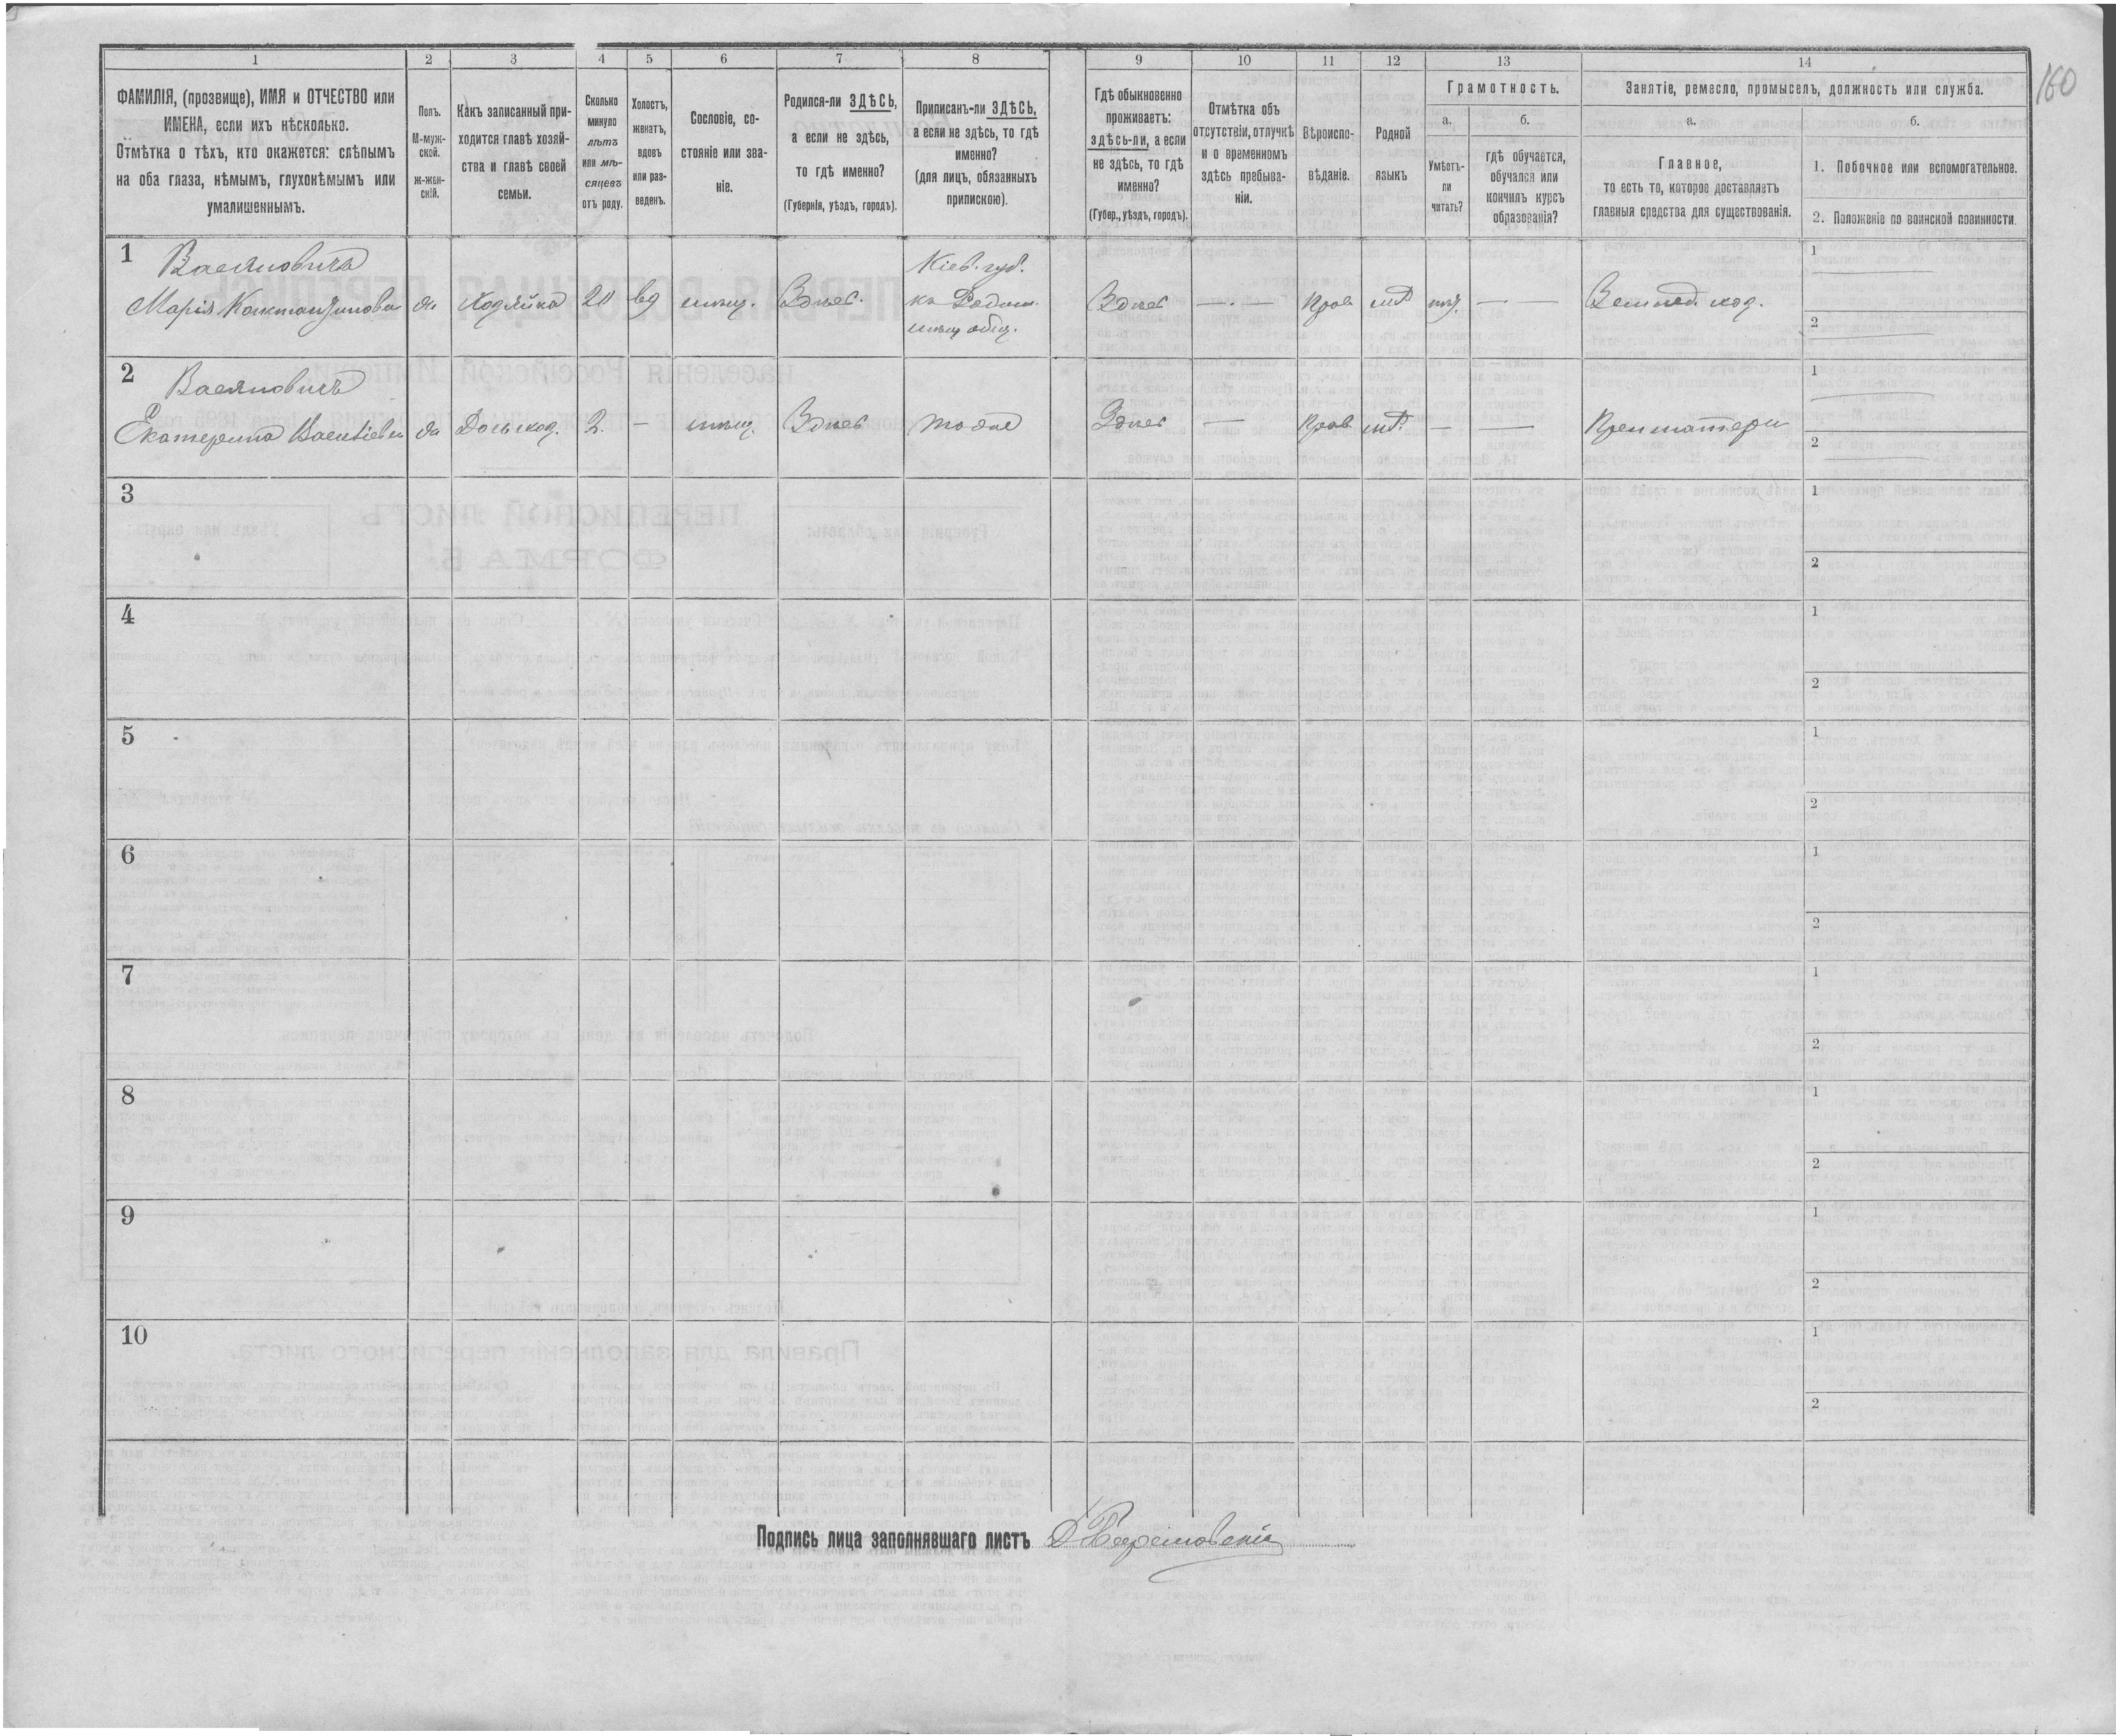 160
1
2
3
4
5
6
7
8
9
10
11
12
13
14
ФАМИЛІЯ, (прозвище), ИМЯ и ОТЧЕСТВО или
ИМЕНА, если ихъ нѣсколько.
Отмѣтка о тѣхъ, кто окажется: слѣпымъ
на оба глаза, нѣмымъ, глухонѣмымъ или
умалишеннымъ.
Полъ.
М-муж-
ской.
Ж-жен-
скій.
Какъ записанный при-
ходится главѣ хозяй-
ства и главѣ своей
семьи.
Сколько
минуло
лѣтъ
или мѣ-
сяцевъ
отъ роду.
Холостъ,
женатъ,
вдовъ
или раз-
веденъ.
Сословіе, со-
стояніе или зва-
ніе.
Родился-ли ЗДѢСЬ,
а если не здѣсь,
то гдѣ именно?
(Губернія, уѣздъ, городъ).
Приписанъ-ли ЗДѢСЬ,
а если не здѣсь, то гдѣ
именно?
(для лицъ, обязанныхъ
припискою).
Гдѣ обыкновенно
проживаетъ:
здѣсь-ли, а если
не здѣсь, то гдѣ
именно?
(Губер., уѣздъ, городъ).
Отмѣтка объ
отсутствіи, отлучкѣ
и о временномъ
здѣсь пребыва-
ніи.
Вѣроиспо-
вѣданіе.
Родной
языкъ
Грамотность.
а.
Умѣетъ-
ли
читать?
б.
гдѣ обучается,
обучался или
кончилъ курсъ
образованія?
Занятіе, ремесло, промыселъ, должность или служба.
а.
Главное,
то есть то, которое доставляетъ
главныя средства для существованія.
б.
1. Побочное или вспомогательное.
2. Положеніе по воинской повинности.
1
Марія
Хозяйка
20
вд
мѣщ.
Здѣсь
Кіев. губ.
къ Радом.
мѣщ общ.
Здѣсь
— . —
Прав
— . —
1
2
2
Екатерина
2
—
мѣщ.
Здѣсь
тоже
Здѣсь
—
Прав
—
—
При матери
1
2
3
1
2
4
1
2
5
1
2
6
1
2
7
1
2
8
1
2
9
1
2
10
1
2
Подпись лица заполнявшаго листъ